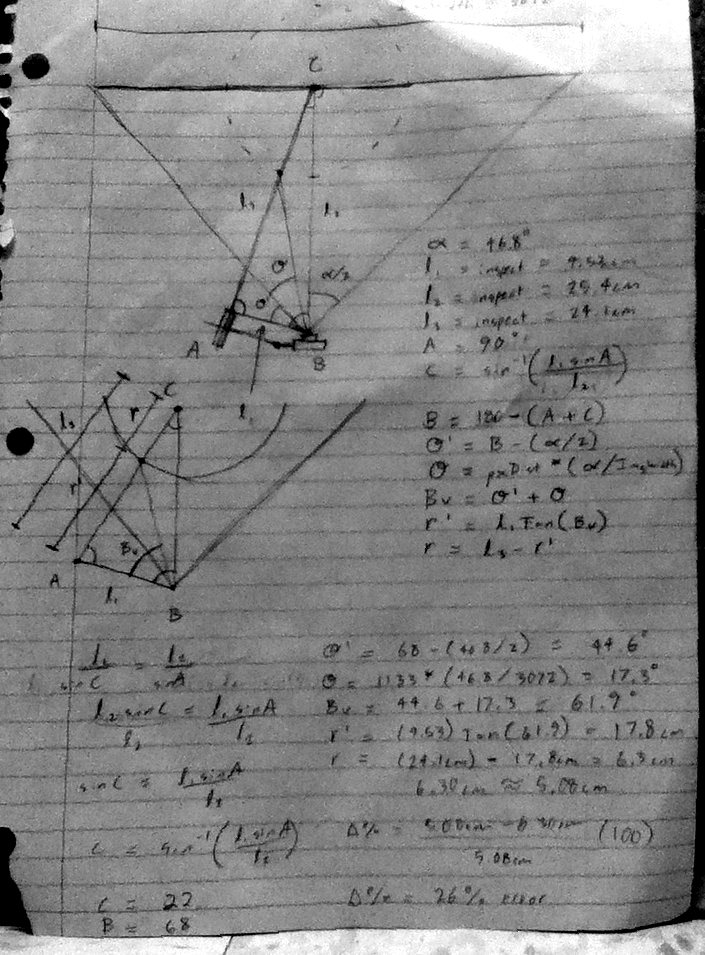 C
l₃
l₂
θ
α/2
θ'
A
B
l₁
α = 46.8°
l₁ = inspect = 9.53cm
l₂ = inspect = 25.4cm
l₃ = inspect = 24.1cm
A = 90°
C = sin⁻¹(l₁ sinA / l₂)
B = 180 - (A + C)
θ' = B - (α/2)
θ = pxDist * (α/Imgwidth)
Bv = θ' + θ
r' = l₁ Tan(Bv)
r = l₃ - r'
C
r
l₃
r'
Bv
A
l₁
B
l₁ / sinC = l₂ / sinA
l₂ sinC / l₂ = l₁ sinA / l₂
sinC = l₁ sinA / l₂
C = sin⁻¹(l₁ sinA / l₂)
C = 22
B = 68
θ' = 68 - (46.8/2) = 44.6°
θ = 1133 * (46.8/3072) = 17.3°
Bv = 44.6 + 17.3 = 61.9°
r' = (9.53) Tan(61.9) = 17.8cm
r = (24.1cm) - 17.8cm = 6.3cm
6.30cm ≈ 5.08cm
Δ% = 5.08cm - 6.30cm / 5.08cm (100)
Δ% = 26% error